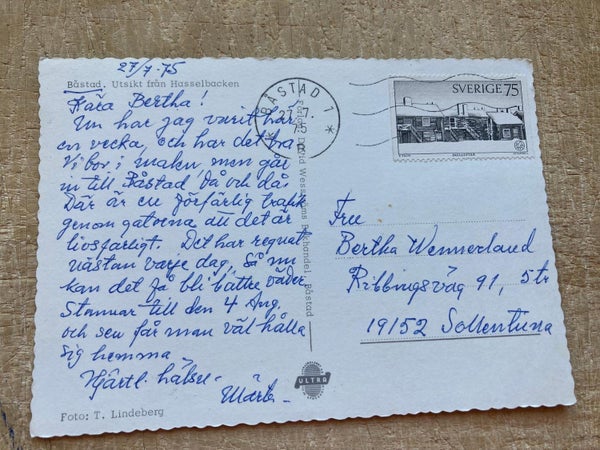 27/7-75
Båstad. Utsikt från Hasselbacken
Kära Bertha!
Nu har jag varit här
en vecka, och har det bra
Vi bor i maken men går
in till Båstad då och då.
Där är en förfärlig trafik
genom gatorna att det är
livsfarligt. Det har regnat
nästan varje dag, så nu
kan det få bli bättre väder.
Stannar till den 4 Aug.
och sen får man väl hålla
sig hemma
Hjärtl. hälsn-
Märta-
Foto: T. Lindeberg
BÅSTAD 1
75
SVERIGE 75
Båstad
ULTRA
Fru
Bertha Wennerland
Ribbingsväg 91, 5 tr
19152 Sollentuna